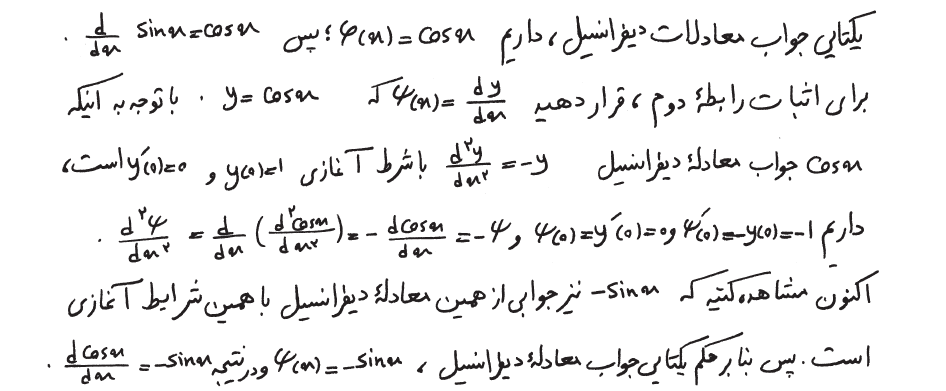 یکتایی جواب معادلات دیفرانسیل، داریم φ(x)=cosx ؛ پس d/dx sinx=cosx .
برای اثبات رابطهٔ دوم، قرار دهید ψ(x)=dy/dx که y=cosx . با توجه به اینکه
cosx جواب معادلهٔ دیفرانسیل d²y/dx²=-y با شرط آغازی y(0)=1 و y′(0)=0 است،
داریم ψ′(0)=-y(0)=-1 و ψ(0)=y′(0)=0 و d²ψ/dx² = d/dx (d²cosx/dx²)=-dcosx/dx=-ψ .
اکنون مشاهده کنید که -sinx نیز جوابی از همین معادلهٔ دیفرانسیل با همین شرایط آغازی
است. پس بنا بر حکم یکتایی جواب معادلهٔ دیفرانسیل، ψ(x)=-sinx و در نتیجه dcosx/dx=-sinx .